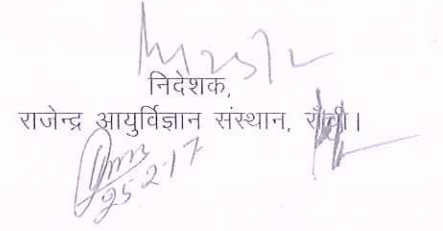 25/2
निदेशक,
राजेन्द्र आयुर्विज्ञान संस्थान, राँची।
25-2-17